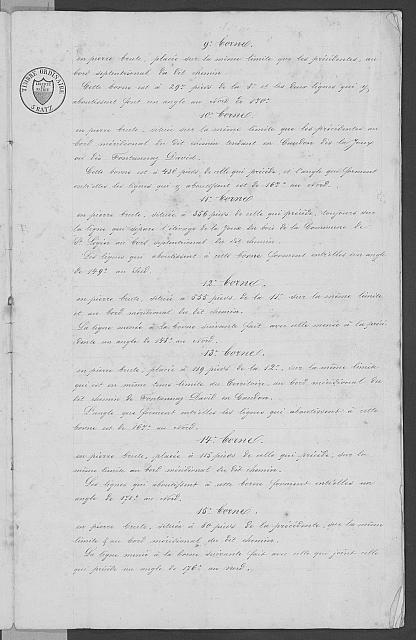 TIMBRE ORDINAIRE
5 BATZ
9e Borne.
en pierre brute, placée sur la même limite que les précédentes, au
bord septentrional du dit chemin.
Cette borne est à 29 pieds de la 8e et les deux lignes qui y
aboutissent font un angle au Nord de 170°.
10e Borne.
en pierre brute, située sur la même limite que les précédentes au
bord méridional du dit chemin tendant en
David.
Cette borne est à 436 pieds de celle qui précède, et l'angle que forment
entr'elles les lignes qui y aboutissent est de au Nord.
11e Borne
en pierre brute, située à 356 pieds de celle qui précède, toujours sur
la ligne qui sépare de la Joux du bois de la Commune de
au bord septentrional du dit chemin.
Les lignes qui aboutissent à cette borne forment entr'elles un angle
de 149° au Sud.
12e Borne.
en pierre brute, située à 555 pieds de la 11e sur la même limite
et au bord méridional du dit chemin.
La ligne menée à la borne suivante fait avec celle menée à la précé-
dente un angle de au Nord.
13e Borne.
en pierre brute, placée à 119 pieds de la 12e, sur la même limite
qui est en même tems limite du territoire, au bord méridional du
dit chemin de David en
L'angle que forment entr'elles les lignes qui aboutissent à cette
borne est de 162° au Nord.
14e Borne.
en pierre brute, placée à 115 pieds de celle qui précède, sur la
même limite au bord méridional du dit chemin.
Les lignes qui aboutissent à cette borne forment entr'elles un
angle de 171° au Nord.
15e Borne.
en pierre brute, située à 60 pieds de la précédente, sur la même
limite & au bord méridional du dit chemin.
La ligne menée à la borne suivante fait avec celle qui joint celle
qui précède un angle de 176° au Nord.